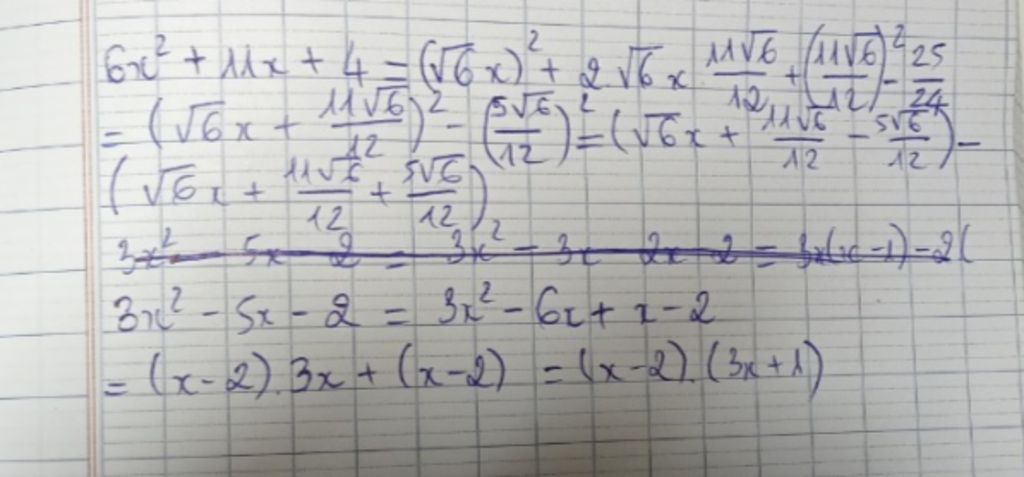 6x² + 11x + 4 = (√6x)² + 2.√6x.11√6/12 + (11√6/12)² - 25/24
= (√6x + 11√6/12)² - (5√6/12)² = (√6x + 11√6/12 - 5√6/12) -
(√6x + 11√6/12 + 5√6/12)
3x² - 5x - 2 = 3x² - 3x - 2x - 2 = 3x(x - 1) - 2(
3x² - 5x - 2 = 3x² - 6x + x - 2
= (x - 2). 3x + (x - 2) = (x - 2). (3x + 1)